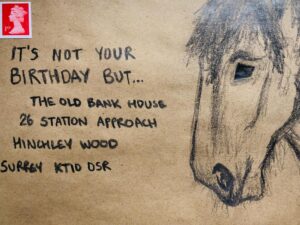 IT'S NOT YOUR
BIRTHDAY BUT...
THE OLD BANK HOUSE
26 STATION APPROACH
HINCHLEY WOOD
SURREY KT10 OSR